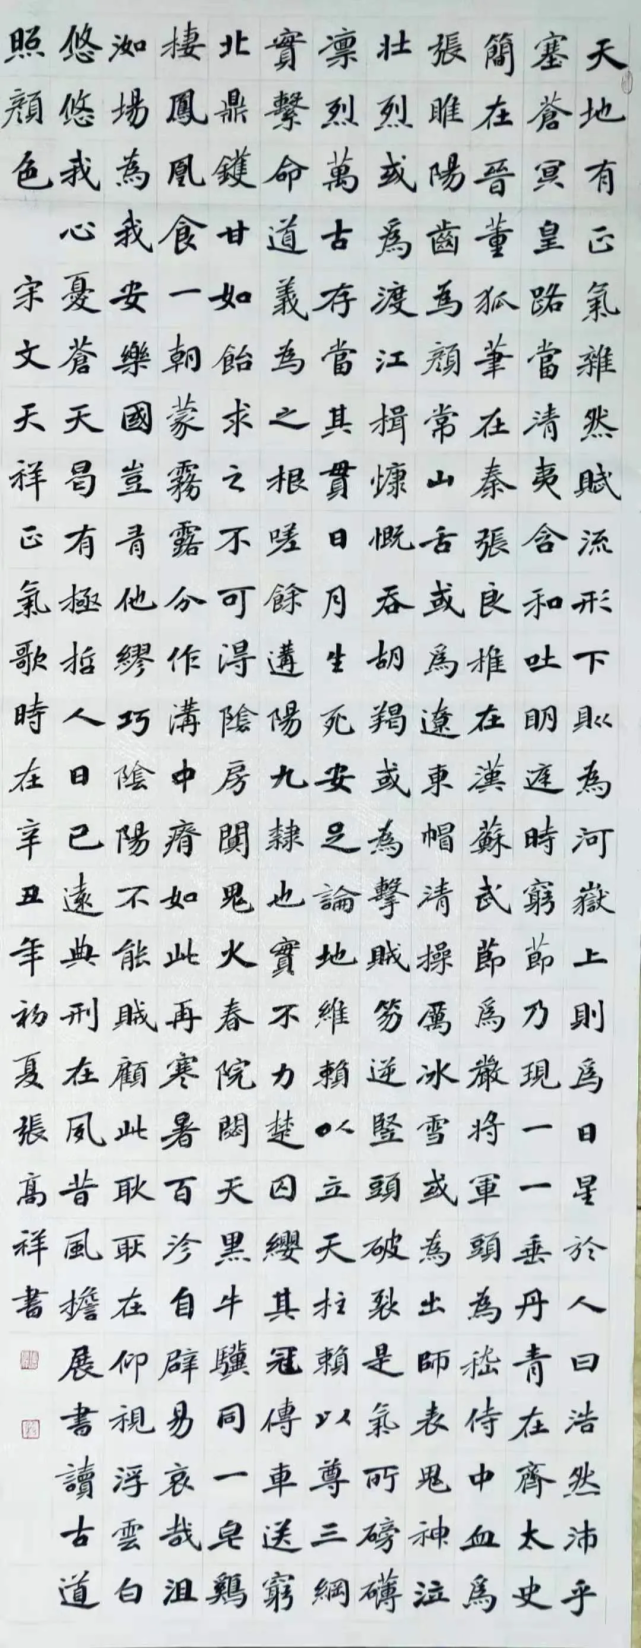 天地有正氣雜然賦流形下則為河嶽上則爲日星於人曰浩然沛乎
塞蒼冥皇路當清夷含和吐明庭時窮節乃現一一垂丹青在齊太史
簡在晉董狐筆在秦張良椎在漢蘇武節爲嚴將軍頭為嵇侍中血爲
張睢陽齒為顏常山舌或爲遼東帽清操厲冰雪或為出師表鬼神泣
壯烈或爲渡江楫慷慨吞胡羯或為擊賊笏逆豎頭破裂是氣所磅礴
凛烈萬古存當其貫日月生死安足論地維賴以立天柱賴以尊三綱
實繫命道義為之根嗟餘遘陽九隸也實不力楚囚纓其冠傳車送窮
北鼎鑊甘如飴求之不可得陰房闃鬼火春院閟天黑牛驥同一皂鷄
棲鳳凰食一朝蒙霧露分作溝中瘠如此再寒暑百沴自辟易哀哉沮
洳場為我安樂國豈有他繆巧陰陽不能賊顧此耿耿在仰視浮雲白
悠悠我心憂蒼天曷有極哲人日已遠典刑在夙昔風檐展書讀古道
照顏色 宋文天祥正氣歌時在辛丑年初夏張高祥書